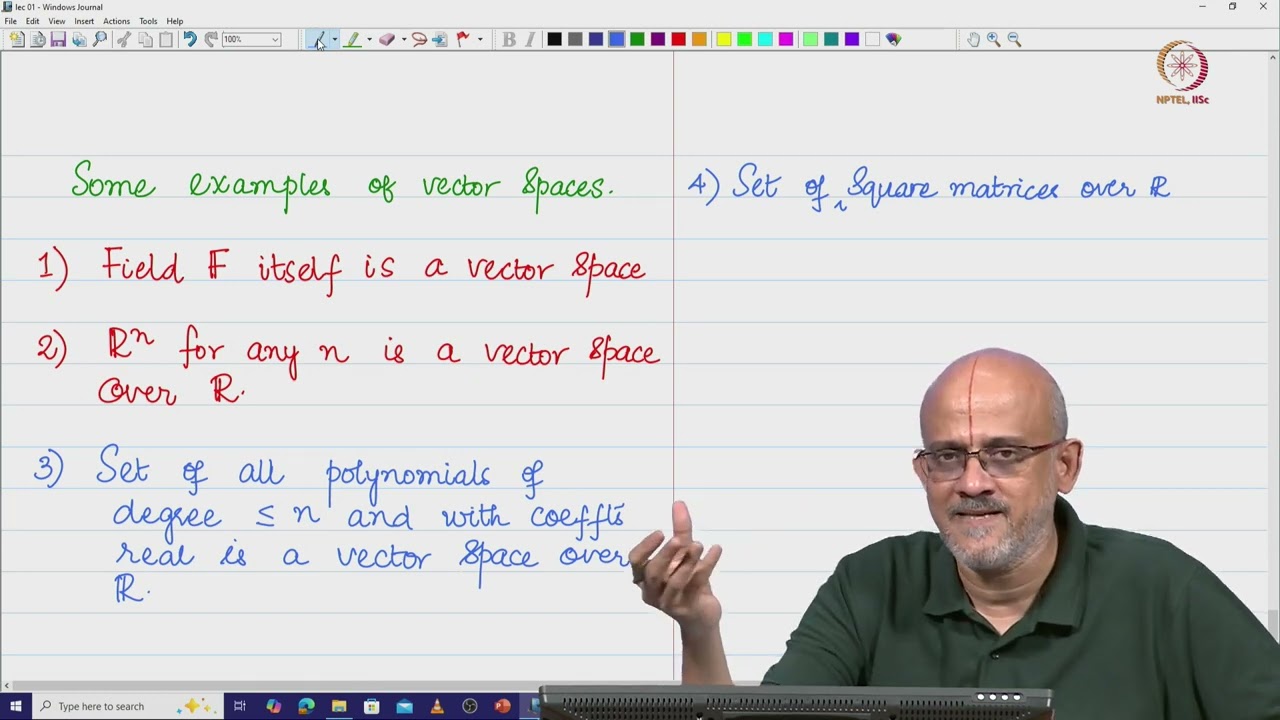 lec 01 - Windows Journal
File Edit View Insert Actions Tools Help
100%
B I
NPTEL, IISc
Some examples of vector spaces.
1) Field F itself is a vector space
2) ℝⁿ for any n is a vector space
over ℝ.
3) Set of all polynomials of
degree ≤ n and with coeffts
real is a vector space over
ℝ.
4) Set of square matrices over ℝ
Type here to search